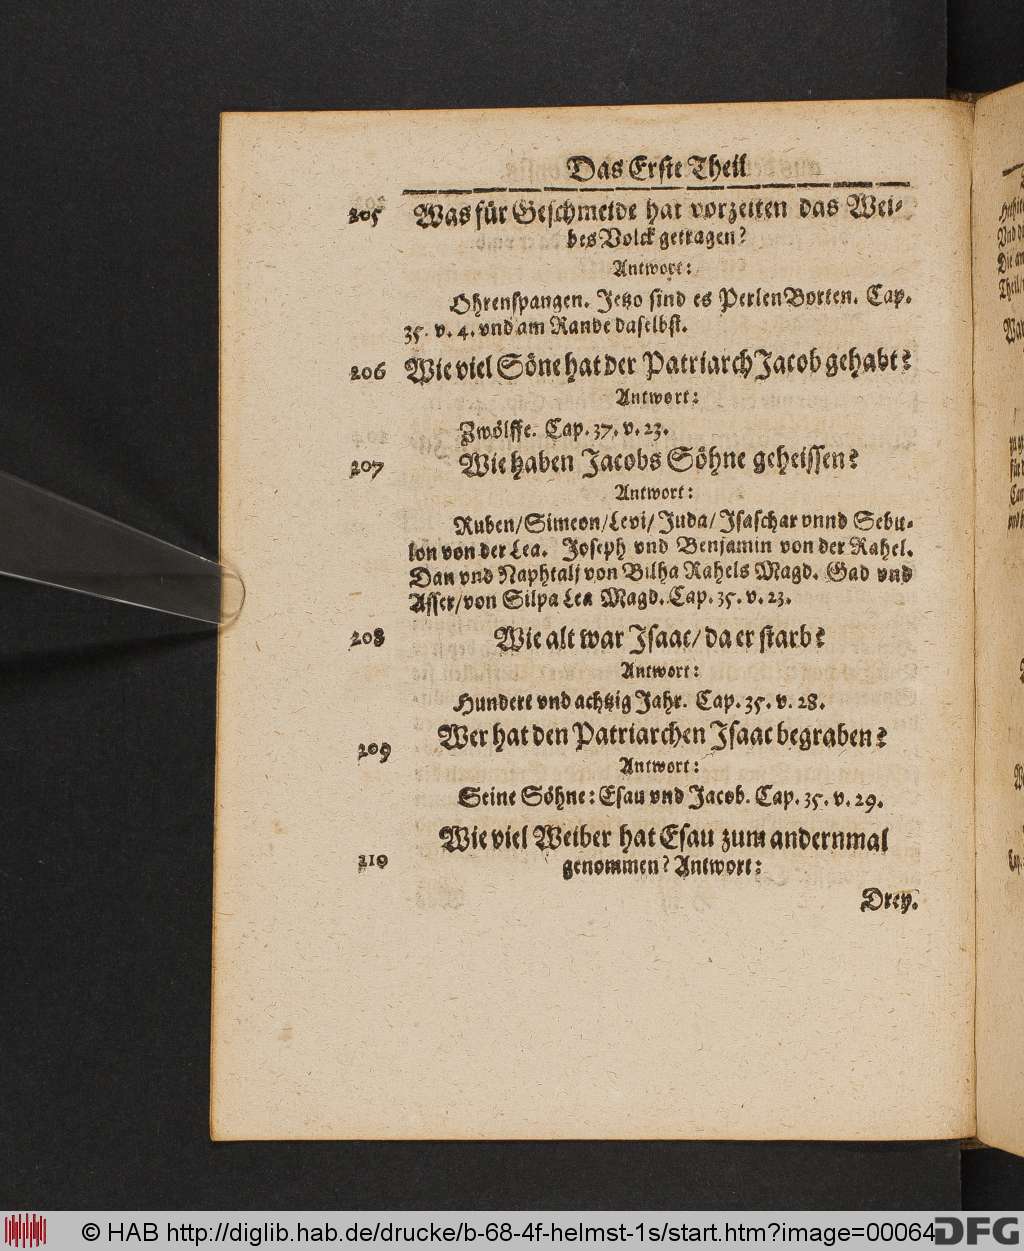 Das Erste Theil
205 Was für Geschmeide hat vorzeiten das Wei-
bes Volck getragen?
Antwort:
Ohrenspangen. Jetzo sind es Perlen Borten. Cap.
35. v. 4. vnd am Rande daselbst.
206 Wie viel Söne hat der Patriarch Jacob gehabt?
Antwort:
Zwölffe. Cap. 37. v. 23.
207 Wie haben Jacobs Söhne geheissen?
Antwort:
Ruben/ Simeon/ Levi/ Juda/ Isaschar vnnd Sebu-
lon von der Lea. Joseph vnd Benjamin von der Rahel.
Dan vnd Naphtalj von Bilha Rahels Magd. Gad vnd
Asser/ von Silpa Lea Magd. Cap. 35. v. 23.
208 Wie alt war Isaac/ da er starb?
Antwort:
Hundert vnd achtzig Jahr. Cap. 35. v. 28.
209 Wer hat den Patriarchen Isaac begraben?
Antwort:
Seine Söhne: Esau vnd Jacob. Cap. 35. v. 29.
210 Wie viel Weiber hat Esau zum andernmal
genommen? Antwort:
Drey.
© HAB http://diglib.hab.de/drucke/b-68-4f-helmst-1s/start.htm?image=00064
DFG